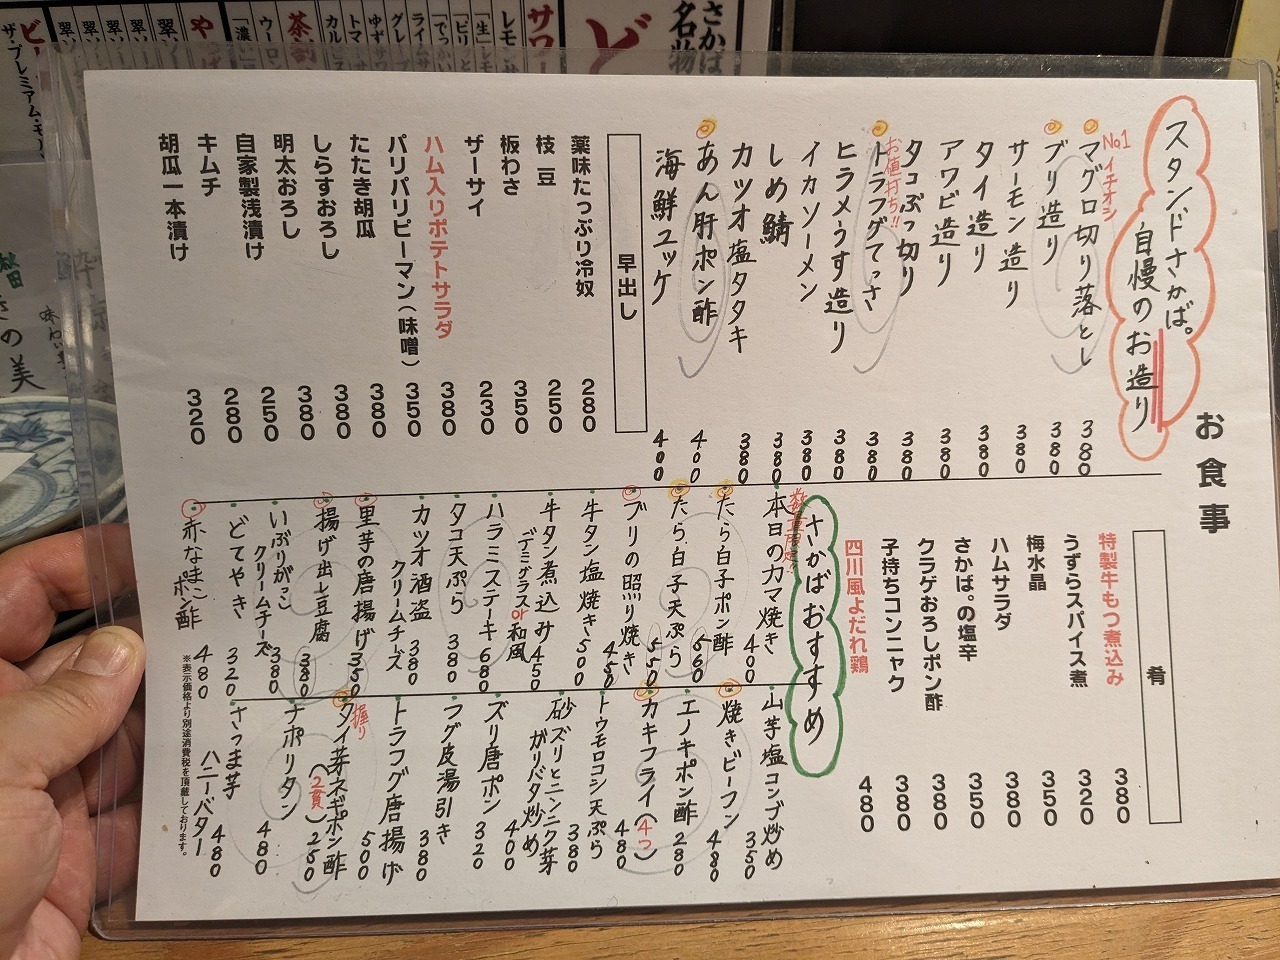 お食事
スタンドさかば。
自慢のお造り
No1 イチオシ
マグロ切り落とし 380
ブリ造り 380
サーモン造り 380
タイ造り 380
アワビ造り 380
タコぶっ切り 380
お値打ち!!
トラフグてっさ 380
ヒラメうす造り 380
イカソーメン 380
しめ鯖 380
カツオ塩タタキ 380
あん肝ポン酢 400
海鮮ユッケ 400
早出し
薬味たっぷり冷奴 280
枝豆 250
板わさ 350
ザーサイ 230
ハム入りポテトサラダ 380
パリパリピーマン(味噌) 350
たたき胡瓜 380
しらすおろし 380
明太おろし 380
自家製浅漬け 250
キムチ 280
胡瓜一本漬け 320
肴
特製牛もつ煮込み 380
うずらスパイス煮 320
梅水晶 350
ハムサラダ 380
さかば。の塩辛 350
クラゲおろしポン酢 380
子持ちコンニャク 380
四川風よだれ鶏 480
さかばおすすめ
数量限定
本日のカマ焼き 400
たら白子ポン酢 560
たら白子天ぷら 550
ブリの照り焼き 450
牛タン塩焼き 500
牛タン煮込み 450
デミグラスor和風
ハラミステーキ 680
タコ天ぷら 380
カツオ酒盗
クリームチーズ 380
里芋の唐揚げ 350
揚げ出し豆腐 380
いぶりがっこ
クリームチーズ 380
どてやき 320
赤なまこ
ポン酢 480
山芋塩コンブ炒め 350
焼きビーフン 480
エノキポン酢 280
カキフライ(4つ) 480
トウモロコシ天ぷら 380
砂ズリとニンニク芽
ガリバタ炒め 400
ズリ唐ポン 320
フグ皮湯引き 380
トラフグ唐揚げ 500
握り
タイ芽ネギポン酢
(2貫) 250
ナポリタン 480
さつま芋
ハニーバター 480
※表示価格より別途消費税を頂戴しております。
さかば
名物
ど
サワ
レモ
「生」
茶割
カル
トマ
グレ
ゆず
ウーロン
「濃い
ザ・プレミアム・モ
の美